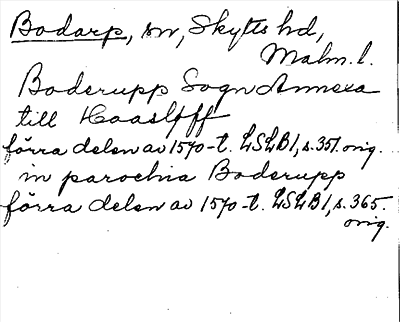 Bodarp, sn, Skytts hd,
Malm. l.
Boderupp Sogn Annexa
till Haaslöff
förra delen av 1570-t. LSLB1, s. 351. orig.
in parochia Boderupp
förra delen av 1570-t. LSLB1, s. 365.
orig.